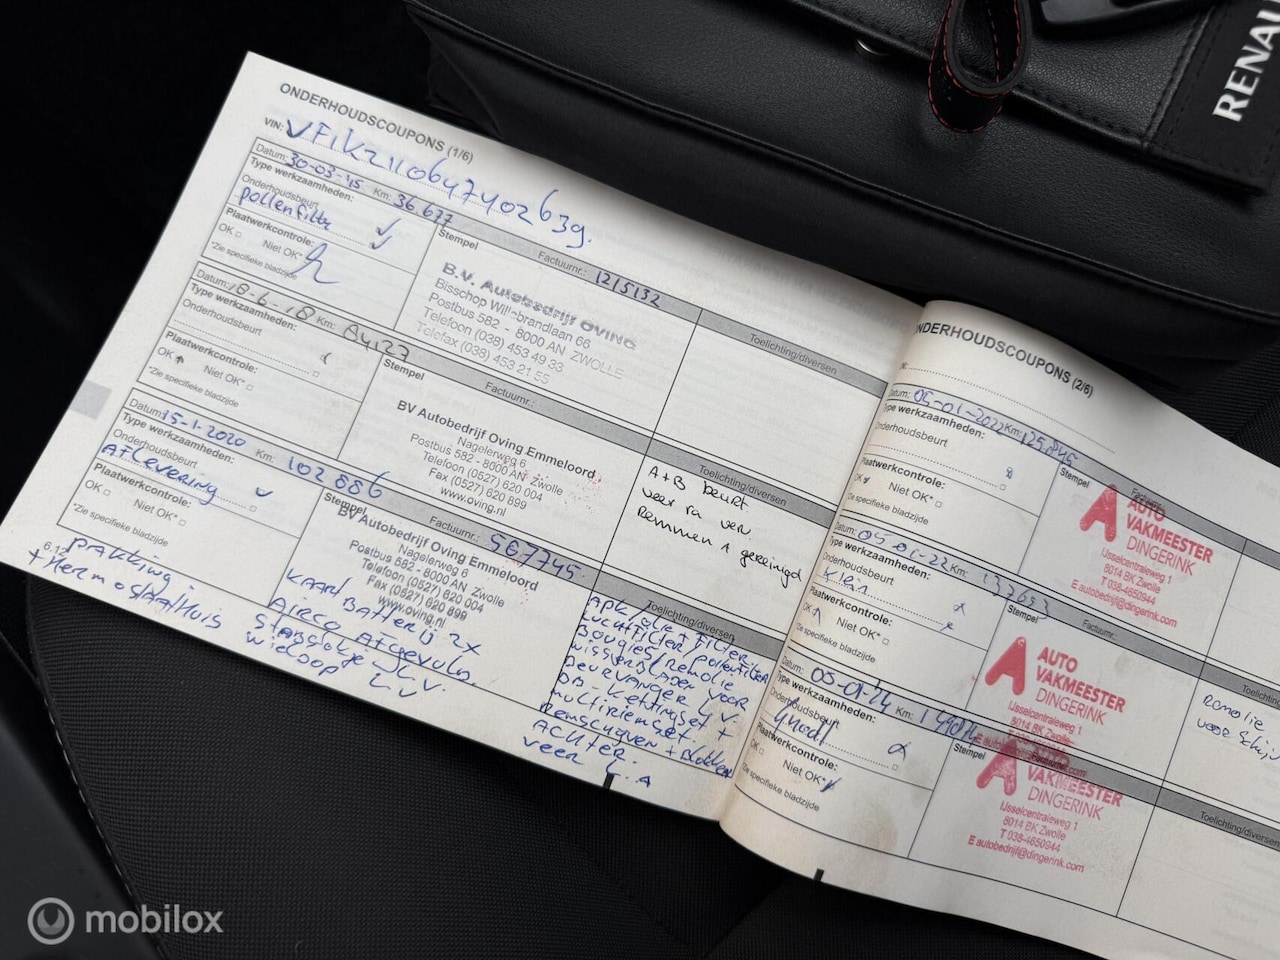 RENAU
ONDERHOUDSCOUPONS (1/6)
VIN: VF1KZ110647402639.
Datum: 30-03-15 Km: 36.677
Factuurnr.: 1215132
Toelichting/diversen
Type werkzaamheden:
Onderhoudsbeurt
pollenfiltr
Plaatwerkcontrole:
OK Niet OK*
*Zie specifieke bladzijde
Stempel
B.V. Autobedrijf OVING
Bisschop Willebrandlaan 66
Postbus 582 - 8000 AN ZWOLLE
Telefoon (038) 453 49 33
Telefax (038) 453 21 55
Datum: 18-6-18 Km: 84127
Factuurnr.:
Toelichting/diversen
Type werkzaamheden:
Onderhoudsbeurt
Plaatwerkcontrole:
OK Niet OK*
*Zie specifieke bladzijde
Stempel
BV Autobedrijf Oving Emmeloord
Nagelerweg 6
Postbus 582 - 8000 AN Zwolle
Telefoon (0527) 620 004
Fax (0527) 620 899
www.oving.nl
A+B beurt
veer ra ver
Remmen A gereinigd
Datum: 15-1-2020 Km: 102886
Factuurnr.: 567745
Toelichting/diversen
Type werkzaamheden:
Onderhoudsbeurt
Aflevering
Plaatwerkcontrole:
OK Niet OK*
*Zie specifieke bladzijde
Stempel
BV Autobedrijf Oving Emmeloord
Nagelerweg 6
Postbus 582 - 8000 AN Zwolle
Telefoon (0527) 620 004
Fax (0527) 620 899
www.oving.nl
Kaart Batterij 2x
Airco Afgevuld.
L.V.
Wieldop L.V
APK olie+filter
Luchtfilter/pollenfilter
Bougies/Remolie
Wisserbladen voor
DB-Kettingset +
multiriemset.
Remschoven + blokken
Achter.
veer L.A
6.12
Pakking -
+ thermostaathuis
ONDERHOUDSCOUPONS (2/6)
Datum: 05-01-2022 Km: 125.845
Type werkzaamheden:
Onderhoudsbeurt
Plaatwerkcontrole:
OK Niet OK*
*Zie specifieke bladzijde
Stempel
AUTO
VAKMEESTER
DINGERINK
IJsselcentraleweg 1
8014 BK Zwolle
T 038-4650944
E autobedrijf@dingerink.com
Datum: 05-01-22 Km: 137653
Factuurnr.:
Type werkzaamheden:
Onderhoudsbeurt
Klein
Plaatwerkcontrole:
OK Niet OK*
*Zie specifieke bladzijde
Stempel
AUTO
VAKMEESTER
DINGERINK
IJsselcentraleweg 1
8014 BK Zwolle
Remolie
voor
Datum: 05-01-24 Km: 149814
Factuurnr.:
Toelichting/diversen
Type werkzaamheden:
Onderhoudsbeurt
groot
Plaatwerkcontrole:
OK Niet OK*
*Zie specifieke bladzijde
Stempel
VAKMEESTER
DINGERINK
IJsselcentraleweg 1
8014 BK Zwolle
T 038-4650944
E autobedrijf@dingerink.com
mobilox